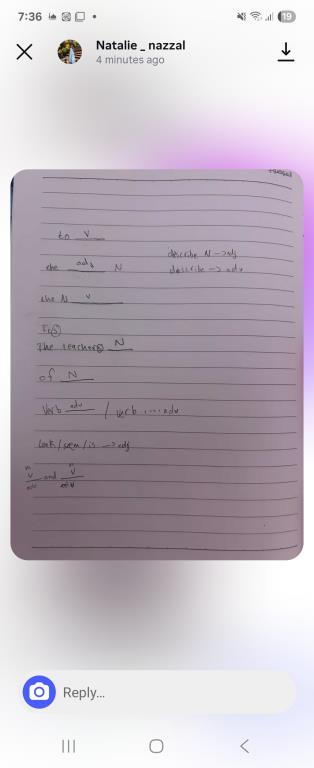 7:36
19
Natalie _ nazzal
4 minutes ago
to v
the adj N
describe N -> adj
describe -> adv
the N v
The teacher(s) N
of N
Verb adv / verb .... adv
look/seem/is -> adj
N N
v and v
adv adv
Reply...